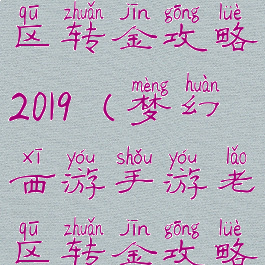 qū zhuǎn jīn gōng lüè
区转金攻略
mèng huàn
2019（梦幻
xī yóu shǒu yóu lǎo
西游手游老
qū zhuǎn jīn gōng lüè
区转金攻略